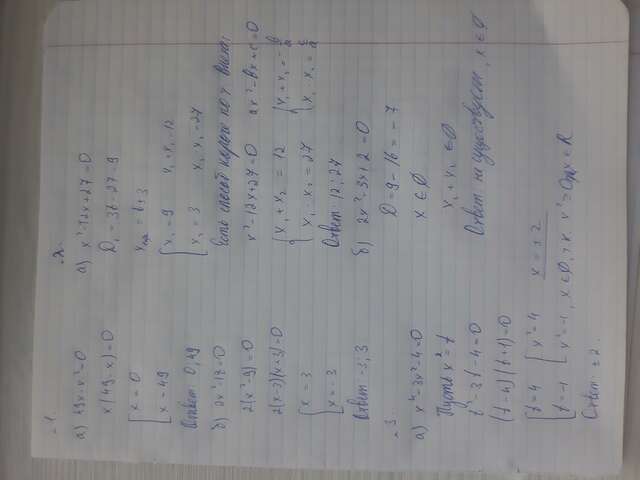 ~1.
а) 49x - x² = 0
x(49 - x) = 0
[ x = 0
x = 49
Ответ: 0, 49
б) 2x² - 18 = 0
2(x² - 9) = 0
2(x-3)(x+3) = 0
[ x = 3
x = -3
Ответ: -3; 3
~3.
а) x⁴ - 3x² - 4 = 0
Пусть x² = t
t² - 3t - 4 = 0
(t-4)(t+1) = 0
[ t = 4 [ x² = 4 x = ±2
t = -1 x² = -1, x ∈ Ø, т.к. x² ≥ 0 x ∈ R
Ответ ±2.
~2.
а) x² - 12x + 27 = 0
D₁ = 36 - 27 = 9
= 6 ± 3
[ x₁ = 9 x₁ + x₂ = 12
x₂ = 3 x₁ · x₂ = 27
Есть способ по т Виета:
x² - 12x + 27 = 0 ax² - bx + c = 0
{ x₁ + x₂ = 12 { x₁ + x₂ = -b/a
x₁ · x₂ = 27 x₁ · x₂ = c/a
Ответ: 12; 27
б) 2x² - 3x + 2 = 0
D = 9 - 16 = -7
x ∈ Ø
x₁ + x₂ ∈ Ø
Ответ не существует, x ∈ Ø